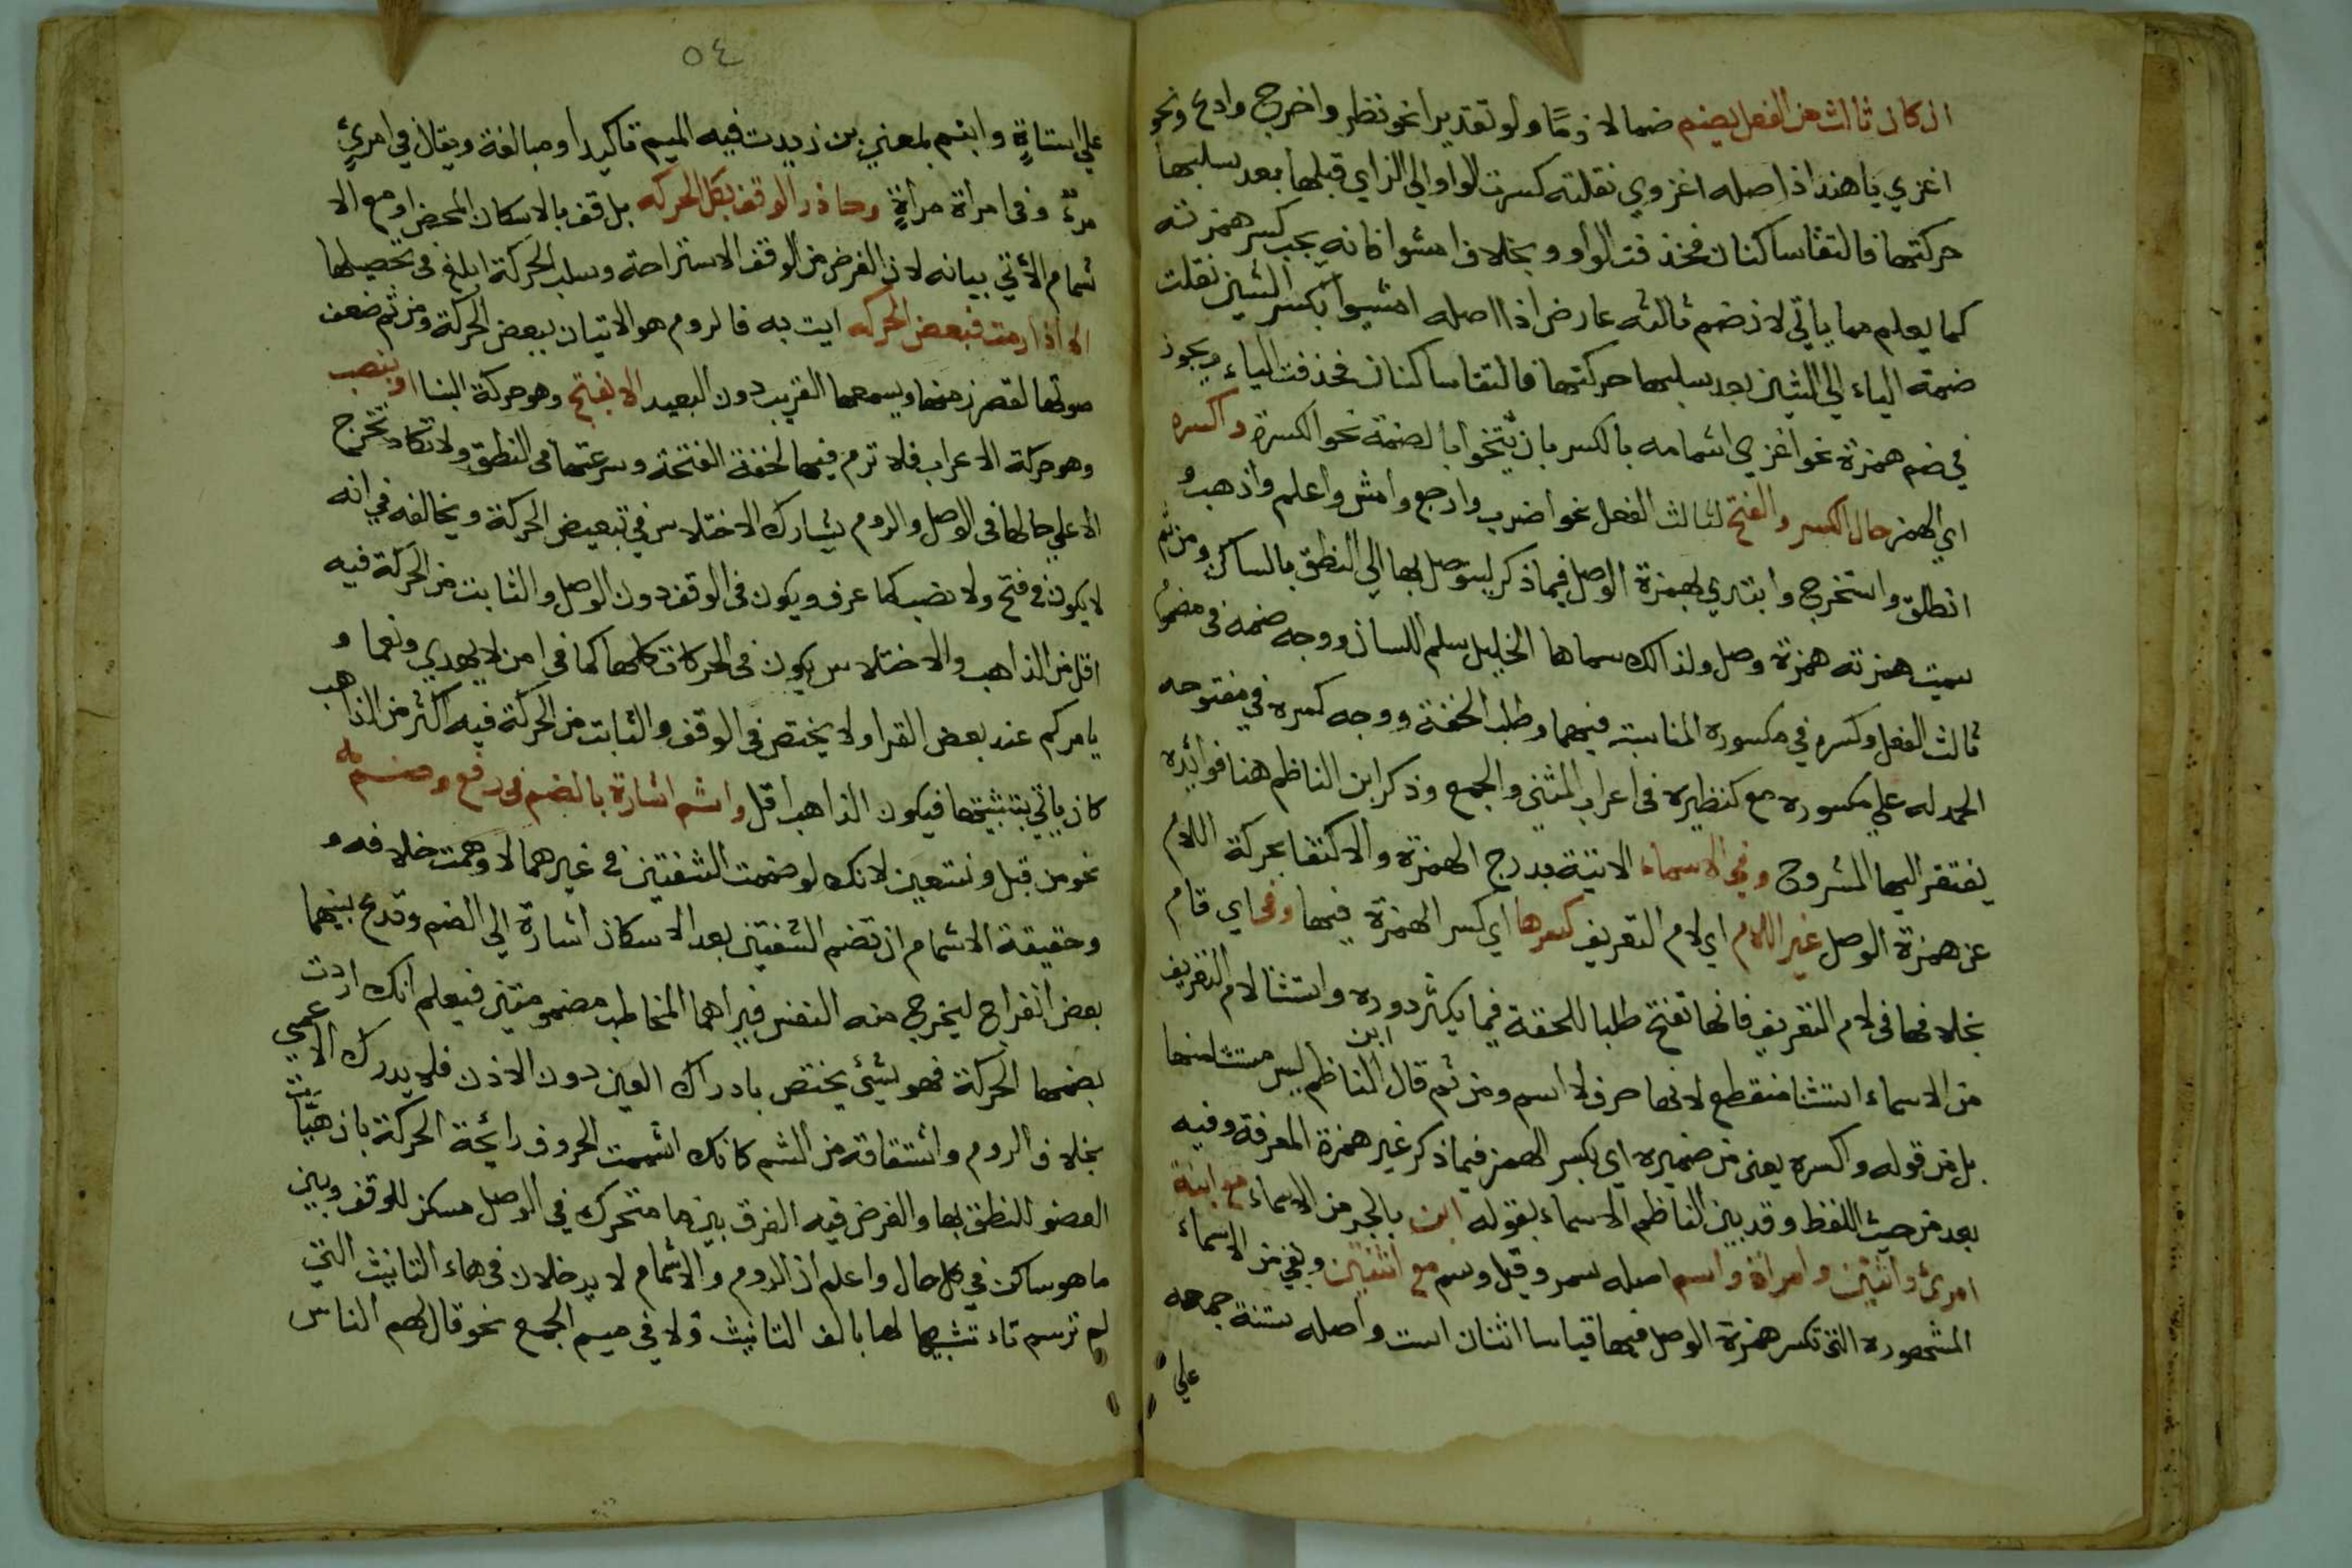 ان كان ثالث من الفعل يضم ضما لازما ولو تقديرا نحو نظر واخرج وادع ونحو
اغزي يا هند اذ اصله اغزوي نقلته كسرت الواو الي الزاي قبلها بعد سلبها
حركتها فالتقا ساكنان فحذفت الواو وبخلاف امشوا فانه يجب كسر همزته
كما يعلم مما ياتي لان ضم ثالثه عارض اذ اصله امشيوا بكسر الشين نقلت
ضمة الياء الي الشين بعد سلبها حركتها فالتقا ساكنان فحذفت الياء ويجوز
في ضم همزة نحو اغزي اشمامه بالكسر بان يتخوا بالضمة نحو الكسرة واكسره
اي الهمز حال الكسر والفتح لثالث الفعل نحو اضرب وارجع وامش واعلم واذهب و
انطلق واستخرج وابتدي بهمزة الوصل فيما ذكر ليتوصل بها الي النطق بالساكن ومن ثم
سميت همزته همزة وصل ولذالك سماها الخليل سلم اللسان ووجه ضمه في مضموم
ثالث الفعل وكسره في مكسوره المناسبة فيهما وطلب الخفة ووجه كسره في مفتوحه
الحمد له علي مكسوره مع كنظيره في اعراب المثني والجمع وذكر ابن الناظم هنا فوائده
يفتقر اليها المشروح وفي الاسماء الاتية بدرج الهمزة والاكتفا بحركة اللام
عن همزة الوصل غير اللام اي لام التعريف كسرها اي كسر الهمزة فيها وفي اي قام
بخلافها في لام التعريف فانها تفتح طلبا للخفة فيما يكثر دوره واستثنا لام التعريف
من الاسماء استثنا منقطع لانها حرف لا اسم ومن ثم قال ابن الناظم ليس مستثنا منها
بل من قوله واكسره يعني من ضميره اي بكسر الهمز فيما ذكر غير همزة المعرفة وفيه
بعد من حيث اللفظ وقد بين الناظم الاسماء بقوله ابن بالجر من الاسماء مع ابنة
امرئ واثنين وامراة واسم اصله سمر وقيل وسم مع اثنتين وبقي من الاسماء
المشهوره التي تكسر همزة الوصل فيها قياسا اثنان است واصله ستنة جمعه
علي
٥٤
علي استاة وابنم بمعني بن زيدت فيه الميم تاكيدا ومبالغة ويقال في امرئ
مرء وفي امراة مراة وحاذر الوقف بكل الحركه بل قف بالاسكان المحض او مع الا
شمام الاتي بيانه لان الغرض من الوقف الاستراحة وسلب الحركة ابلغ في تحصيلها
الا اذا رمت فبعض الحركه ايت به فالروم هو الاتيان ببعض الحركة ومن ثم ضعف
صوتها لقصر زمنها ويسمعها القريب دون البعيد الا بفتح وهو حركة البنا او بنصب
وهو حركة الاعراب فلا ترم فيهما لخفة الفتحة وسرعتها في النطق ولا تكاد تخرج
الا علي حالها في الوصل والروم يشارك الاختلاس في تبعيض الحركة ويخالفه في انه
لا يكون في فتح ولا نصب كما عرف ويكون في الوقف دون الوصل والثابت من الحركة فيه
اقل من الذاهب والاختلاس يكون في الحركات كلها كما في امن لا يهدي ونعما و
يامركم عند بعض القرا ولا يختص في الوقف والثابت من الحركة فيه اكثر من الذاهب
كان ياتي بثلثيها فيكون الذاهب اقل واشم اشارة بالضم في رفع وضم له
نحو من قبل ونستعين لانك لو ضممت الشفتين في غيرهما لاوهمت خلافه و
وحقيقة الاشمام ان تضم الشفتين بعد الاسكان اشارة الي الضم وتدع بينهما
بعض انفراج ليخرج منه النفس فيراهما المخاطب مضمومتين فيعلم انك اردت
بضمهما الحركة فهو شيئ يختص بادراك العين دون الاذن فلا يدركه الاعمي
بخلاف الروم واشتقاقه من الشم كانك اشممت الحروف رائحة الحركة بان هيات
العضو للنطق بها والغرض فيه الفرق بين ما متحرك في الوصل مسكن للوقف وبين
ما هو ساكن في كل حال واعلم ان الروم والاشمام لا يدخلان في هاء التانيث التي
لم ترسم تاء تشبيها لها بالف التانيث ولا في ميم الجمع نحو قال لهم الناس